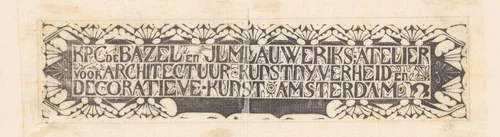 K.P.C. DE BAZEL en J.L.M. LAUWERIKS·ATELIER
VOOR ARCHITECTUUR·KUNSTNYVERHEID EN
DECORATIEVE·KUNST·AMSTERDAM